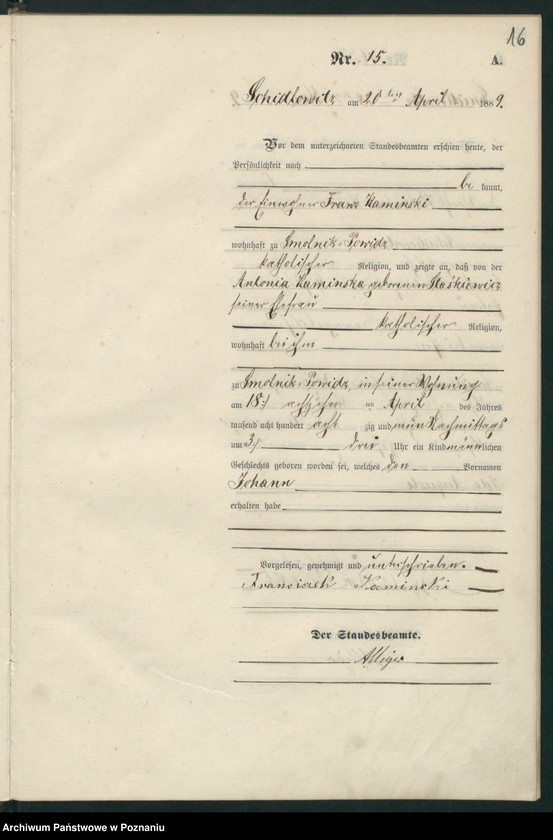 16
Nr. 15.
A.
Schidlowitz am 20ten April 1889.
Vor dem unterzeichneten Standesbeamten erschien heute, der
Persönlichkeit nach
be kannt,
der Einwohner Franz Kaminski
wohnhaft zu Smolnik-Powidz
katholischer Religion, und zeigte an, daß von der
Antonia Kaminska geborenen Staśkiewicz
seiner Ehefrau
katholischer Religion,
wohnhaft bei ihm
zu Smolnik-Powidz, in seiner Wohnung
am 18:/ achtzehn ten April des Jahres
tausend acht hundert acht zig und neun Nachmittags
um 3:/ drei Uhr ein Kind männlichen
Geschlechts geboren worden sei, welches den Vornamen
Johann
erhalten habe
Vorgelesen, genehmigt und unterschrieben.
Franciszek Kaminski
Der Standesbeamte.
Archiwum Państwowe w Poznaniu